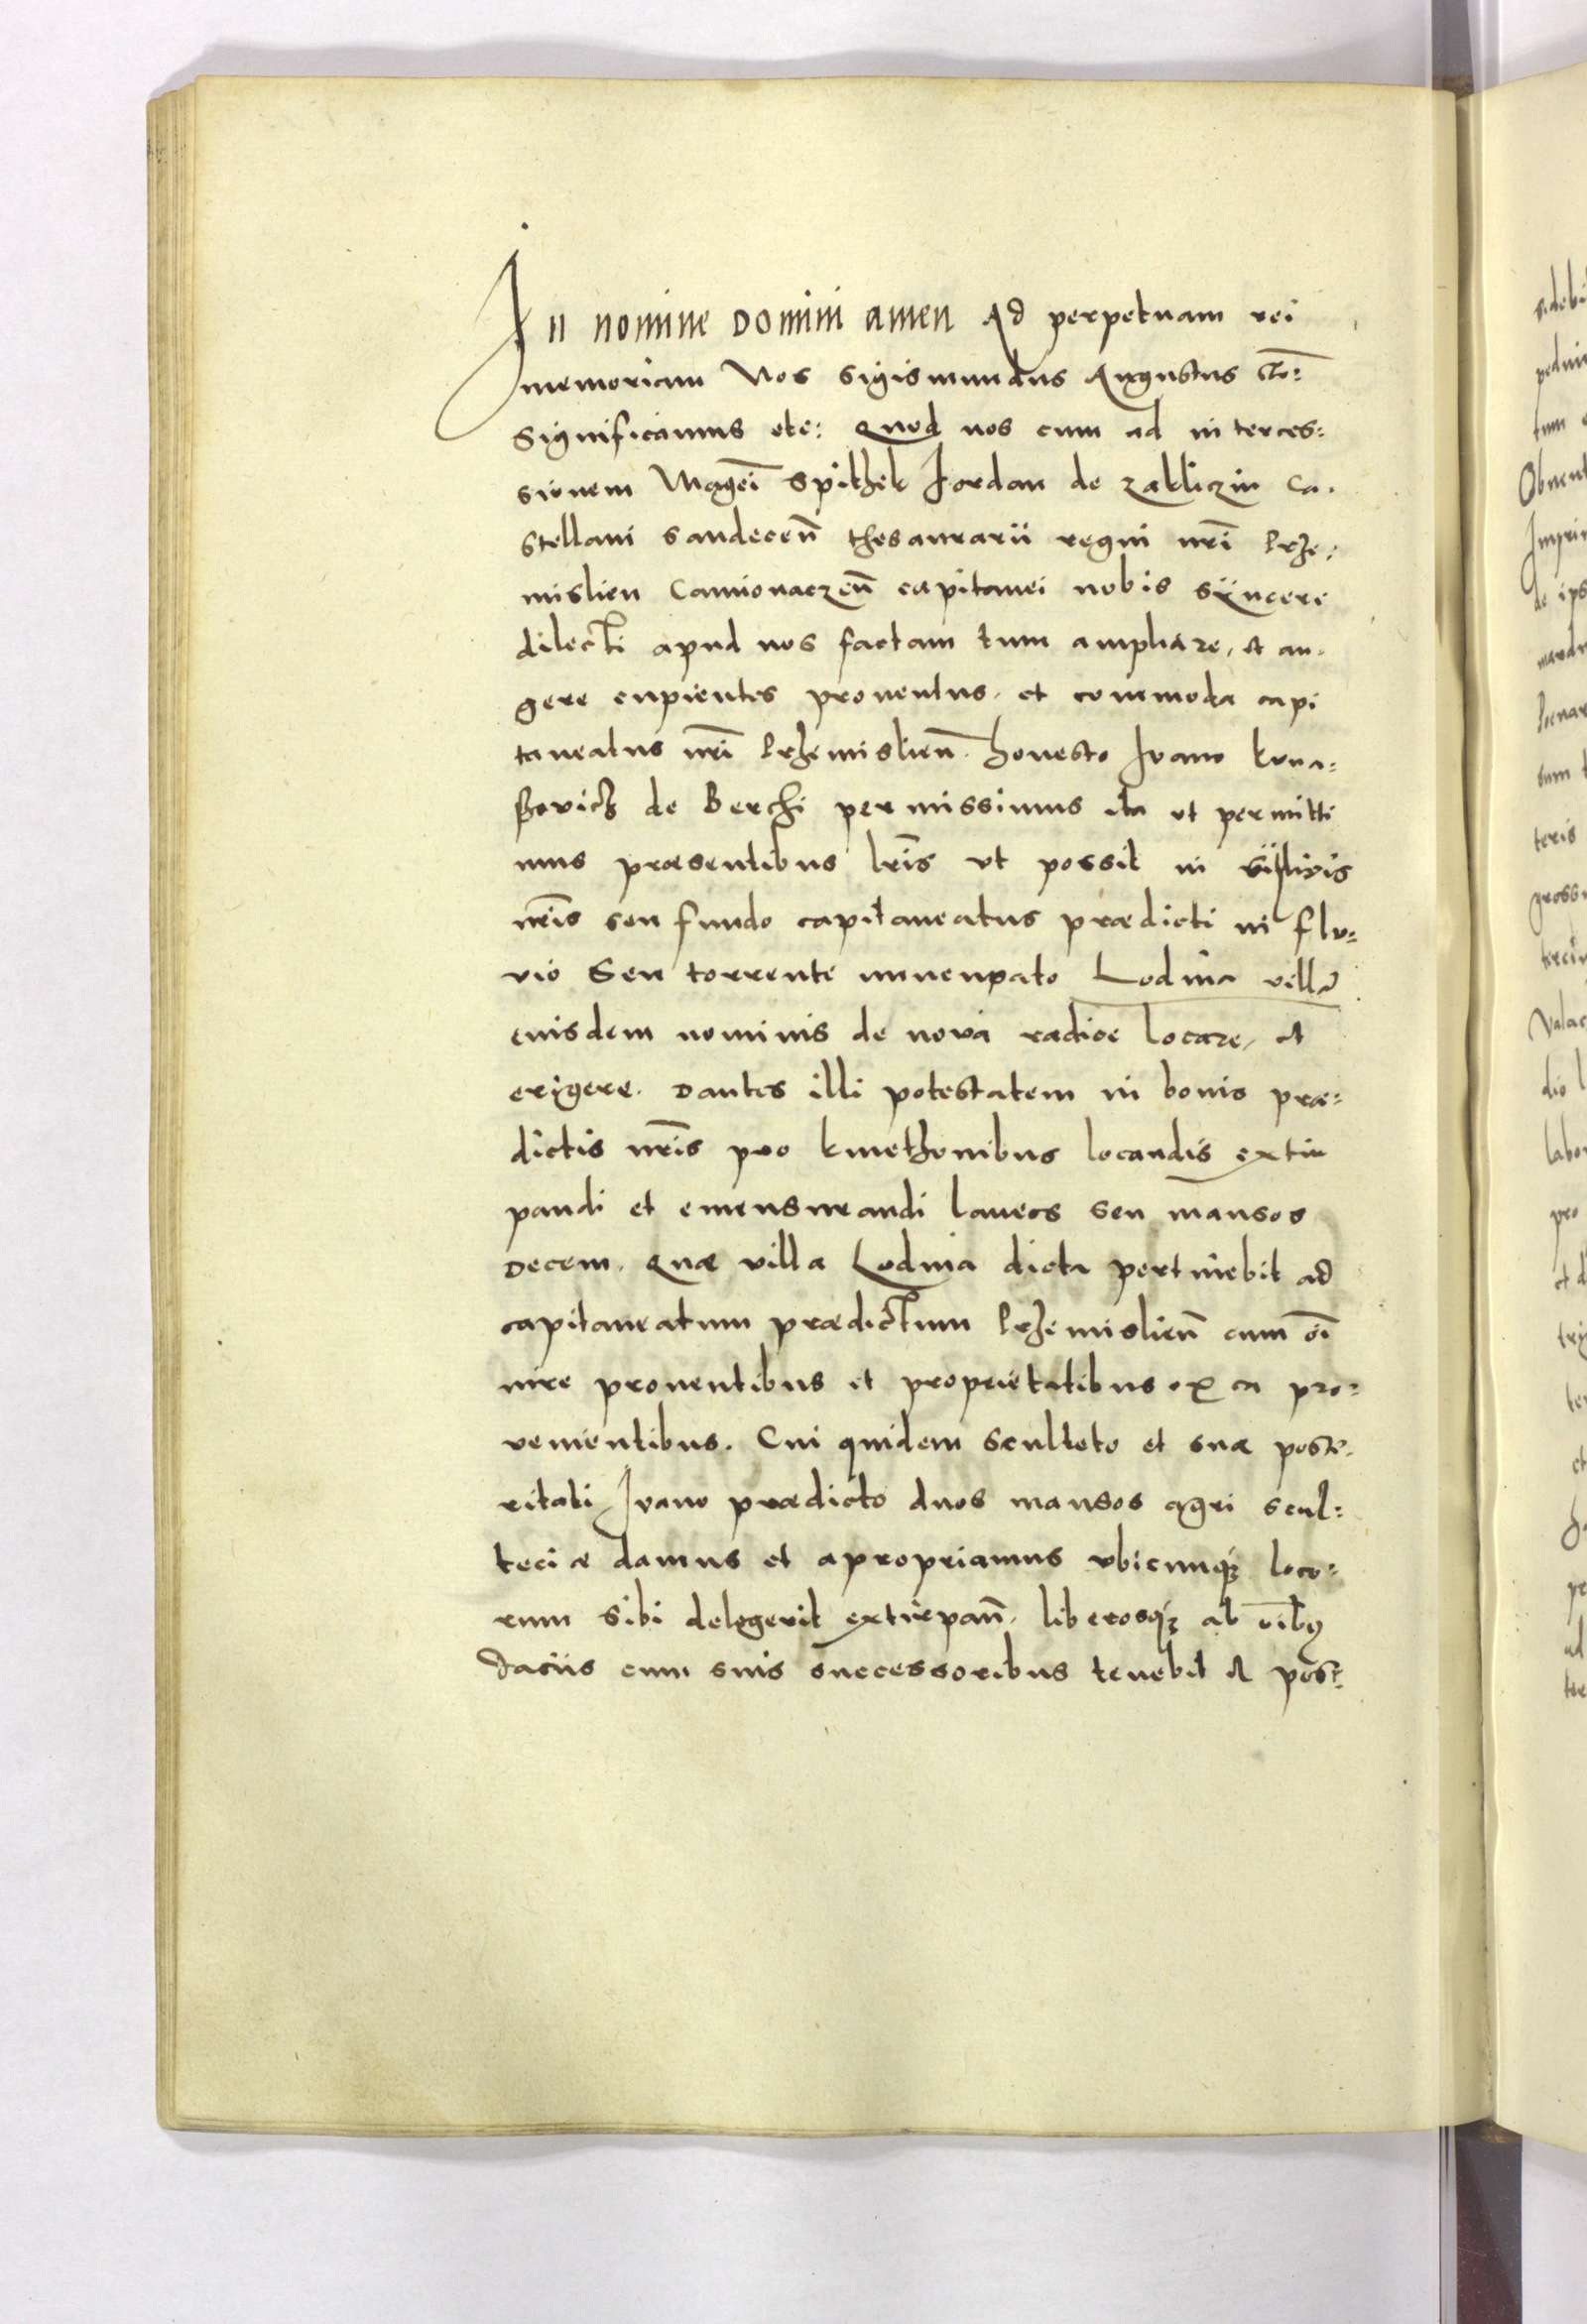 In nomine Domini amen Ad perpetuam rei
memoriam Nos Sigismundus Augustus etc:
Significamus etc: Quod nos cum ad interces:
sionem Magci Spithek Jordan de Zakliczin Ca.
stellani Sandecen̄ thesaurarii regni nrī Prze:
mislien Camionaczen̄ capitanei nobis syncere
dilecti apud nos factam tum ampliare, et au.
gere cupientes proventus. et commoda capi
taneatus nrī Przemislien̄. honesto Ivano
de Berehi permissimus ita ut permitti
mus præsentibus lrīs ut possit in
nrīs seu fundo capitaneatus prædicti in flu:
vio Seu torrente nuncupato Lodina villā
eiusdem nominis de nova radice locare, et
erigere. Dantes illi potestatem in bonis præ:
dictis nrīs pro kmethonibus locandis extir
pandi et emensurandi laneos seu mansos
Decem. Quæ villa Lodina dicta pertinebit ad
capitaneatum prædictum Przemislien̄ cum oī
iure proventibus et proprietatibus ex ea pro:
venientibus. Cui quidem Sculteto et suæ poste:
ritati Ivano prædicto duos mansos agri scul:
teciæ damus et apropriamus ubicunqꝫ loco:
rum sibi delegerit extirpan̄. liberosqꝫ ab oībꝰ
daciis cum suis successoribus tenebit et post: